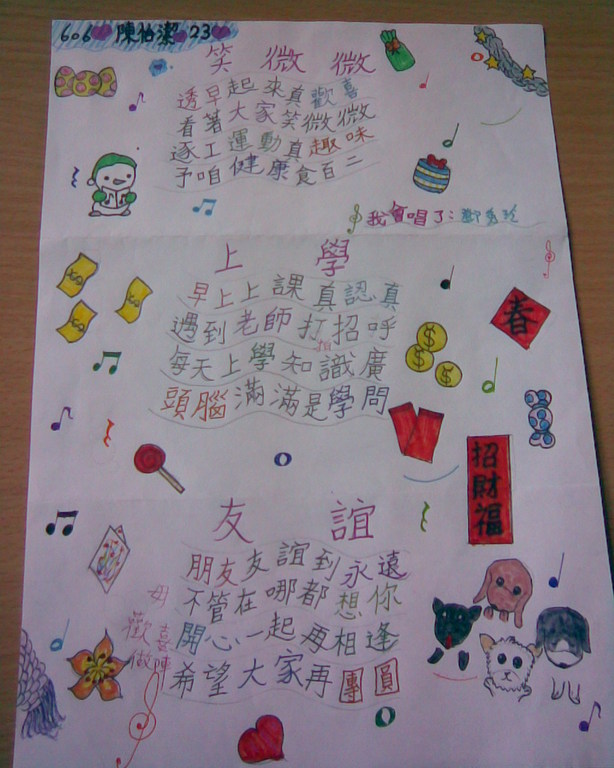 606 陳怡潔 23
笑微微
透早起來真歡喜
看著大家笑微微
逐工運動真趣味
予咱健康食百二
我會唱了:鄭秀珍
上學
早上上課真認真
遇到老師打招呼
每天上學知識廣
頭腦滿滿是學問
春
招財福
友誼
朋友友誼到永遠
不管在哪都想你
開心一起再相逢
希望大家再團圓
歡喜
做陣